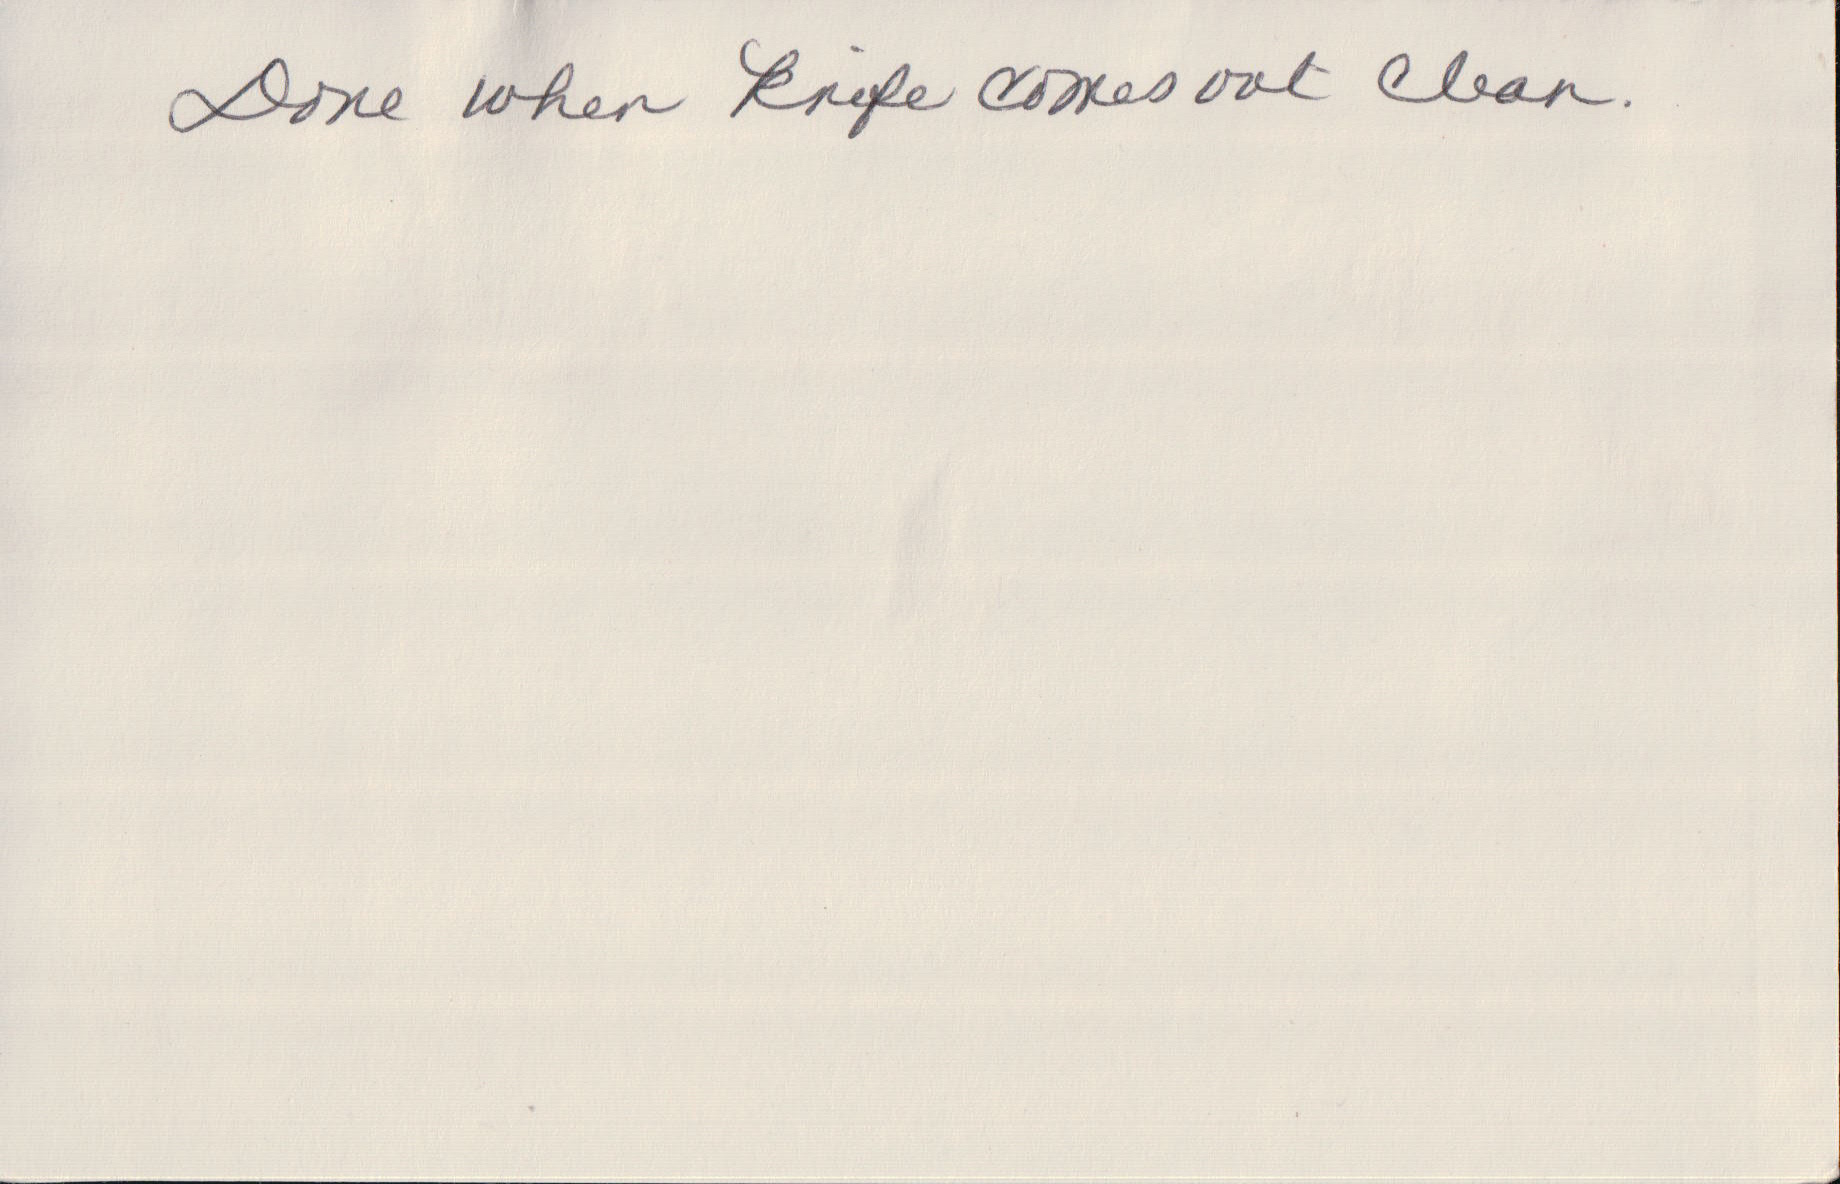 Done when Knife comes out Clean.